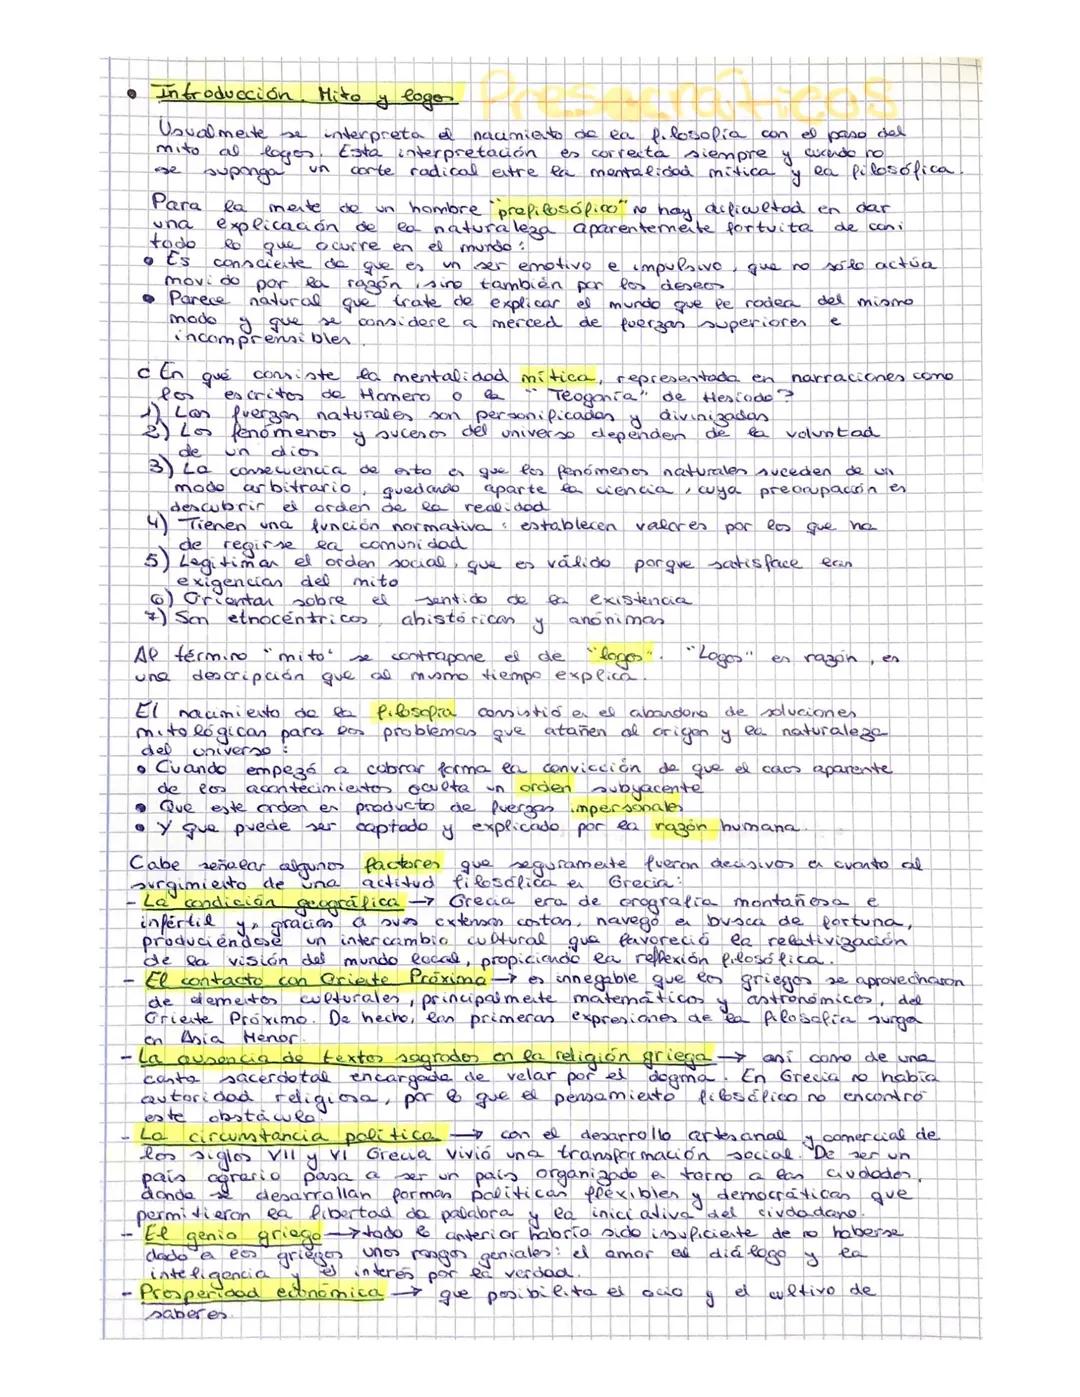 Presocráticos
• Introducción. Mito y logos
Usualmente se interpreta el nacimiento de la filosofía con el paso del
mito al logos. Esta interpretación es correcta siempre y cuando no
se suponga un corte radical entre la mentalidad mítica y la filosófica.
Para la mente de un hombre "prefilosófico" no hay dificultad en dar
una explicación de la naturaleza aparentemente fortuita de casi
todo lo que ocurre en el mundo:
• Es consciente de que es un ser emotivo e impulsivo, que no sólo actúa
movido por la razón, sino también por los deseos
• Parece natural que trate de explicar el mundo que le rodea del mismo
modo y que se considere a merced de fuerzas superiores e
incomprensibles.
¿En qué consiste la mentalidad mítica, representada en narraciones como
los escritos de Homero o la "Teogonía" de Hesíodo?
1) Las fuerzas naturales son personificadas y divinizadas
2) Los fenómenos y sucesos del universo dependen de la voluntad
de un dios
3) La consecuencia de esto es que los fenómenos naturales suceden de un
modo arbitrario, quedando aparte la ciencia, cuya preocupación es
descubrir el orden de la realidad
4) Tienen una función normativa: establecen valores por los que ha
de regirse la comunidad
5) Legitiman el orden social, que es válido porque satisface las
exigencias del mito
6) Orientan sobre el sentido de la existencia
7) Son etnocéntricos, ahistóricas y anónimas
Al término "mito" se contrapone el de "logos". "Logos" es razón, es
una descripción que al mismo tiempo explica.
El nacimiento de la filosofía consistió en el abandono de soluciones
mitológicas para los problemas que atañen al origen y la naturaleza
del universo:
• Cuando empezó a cobrar forma la convicción de que el caos aparente
de los acontecimientos oculta un orden subyacente
• Que este orden es producto de fuerzas impersonales
• Y que puede ser captado y explicado por la razón humana.
Cabe señalar algunos factores que seguramente fueron decisivos en cuanto al
surgimiento de una actitud filosófica en Grecia:
- La condición geográfica → Grecia era de orografía montañosa e
infértil y, gracias a sus extensas costas, navegó en busca de fortuna,
produciéndose un intercambio cultural que favoreció la relativización
de la visión del mundo local, propiciando la reflexión filosófica.
- El contacto con Oriente Próximo → es innegable que los griegos se aprovecharon
de elementos culturales, principalmente matemáticos y astronómicos, del
Oriente Próximo. De hecho, las primeras expresiones de la filosofía surga
en Asia Menor.
- La ausencia de textos sagrados en la religión griega → así como de una
casta sacerdotal encargada de velar por el dogma. En Grecia no había
autoridad religiosa, por lo que el pensamiento filosófico no encontró
este obstáculo.
- La circunstancia política → con el desarrollo artesanal y comercial de
los siglos VII y VI Grecia vivió una transformación social. De ser un
país agrario pasa a ser un país organizado en torno a las ciudades,
donde se desarrollan formas políticas flexibles y democráticas que
permitieron la libertad de palabra y la iniciativa del ciudadano.
- El genio griego → todo lo anterior habría sido insuficiente de no haberse
dado a los griegos unos rasgos geniales: el amor al diálogo y la
inteligencia y el interés por la verdad.
- Prosperidad económica → que posibilita el ocio y el cultivo de
saberes.